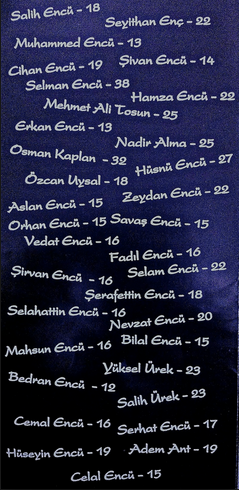 Salih Encü - 18
Seyithan Enç - 22
Muhammed Encü - 13
Cihan Encü - 19
Şivan Encü - 14
Selman Encü - 38
Hamza Encü - 22
Mehmet Ali Tosun - 25
Erkan Encü - 13
Nadir Alma - 25
Osman Kaplan - 32
Hüsnü Encü - 27
Özcan Uysal - 18
Zeydan Encü - 22
Aslan Encü - 15
Orhan Encü - 15
Savaş Encü - 15
Vedat Encü - 16
Fadıl Encü - 16
Şirvan Encü - 16
Selam Encü - 22
Şerafettin Encü - 18
Selahattin Encü - 16
Nevzat Encü - 20
Mahsun Encü - 16
Bilal Encü - 15
Yüksel Ürek - 23
Bedran Encü - 12
Salih Ürek - 23
Cemal Encü - 16
Serhat Encü - 17
Hüseyin Encü - 19
Adem Ant - 19
Celal Encü - 15